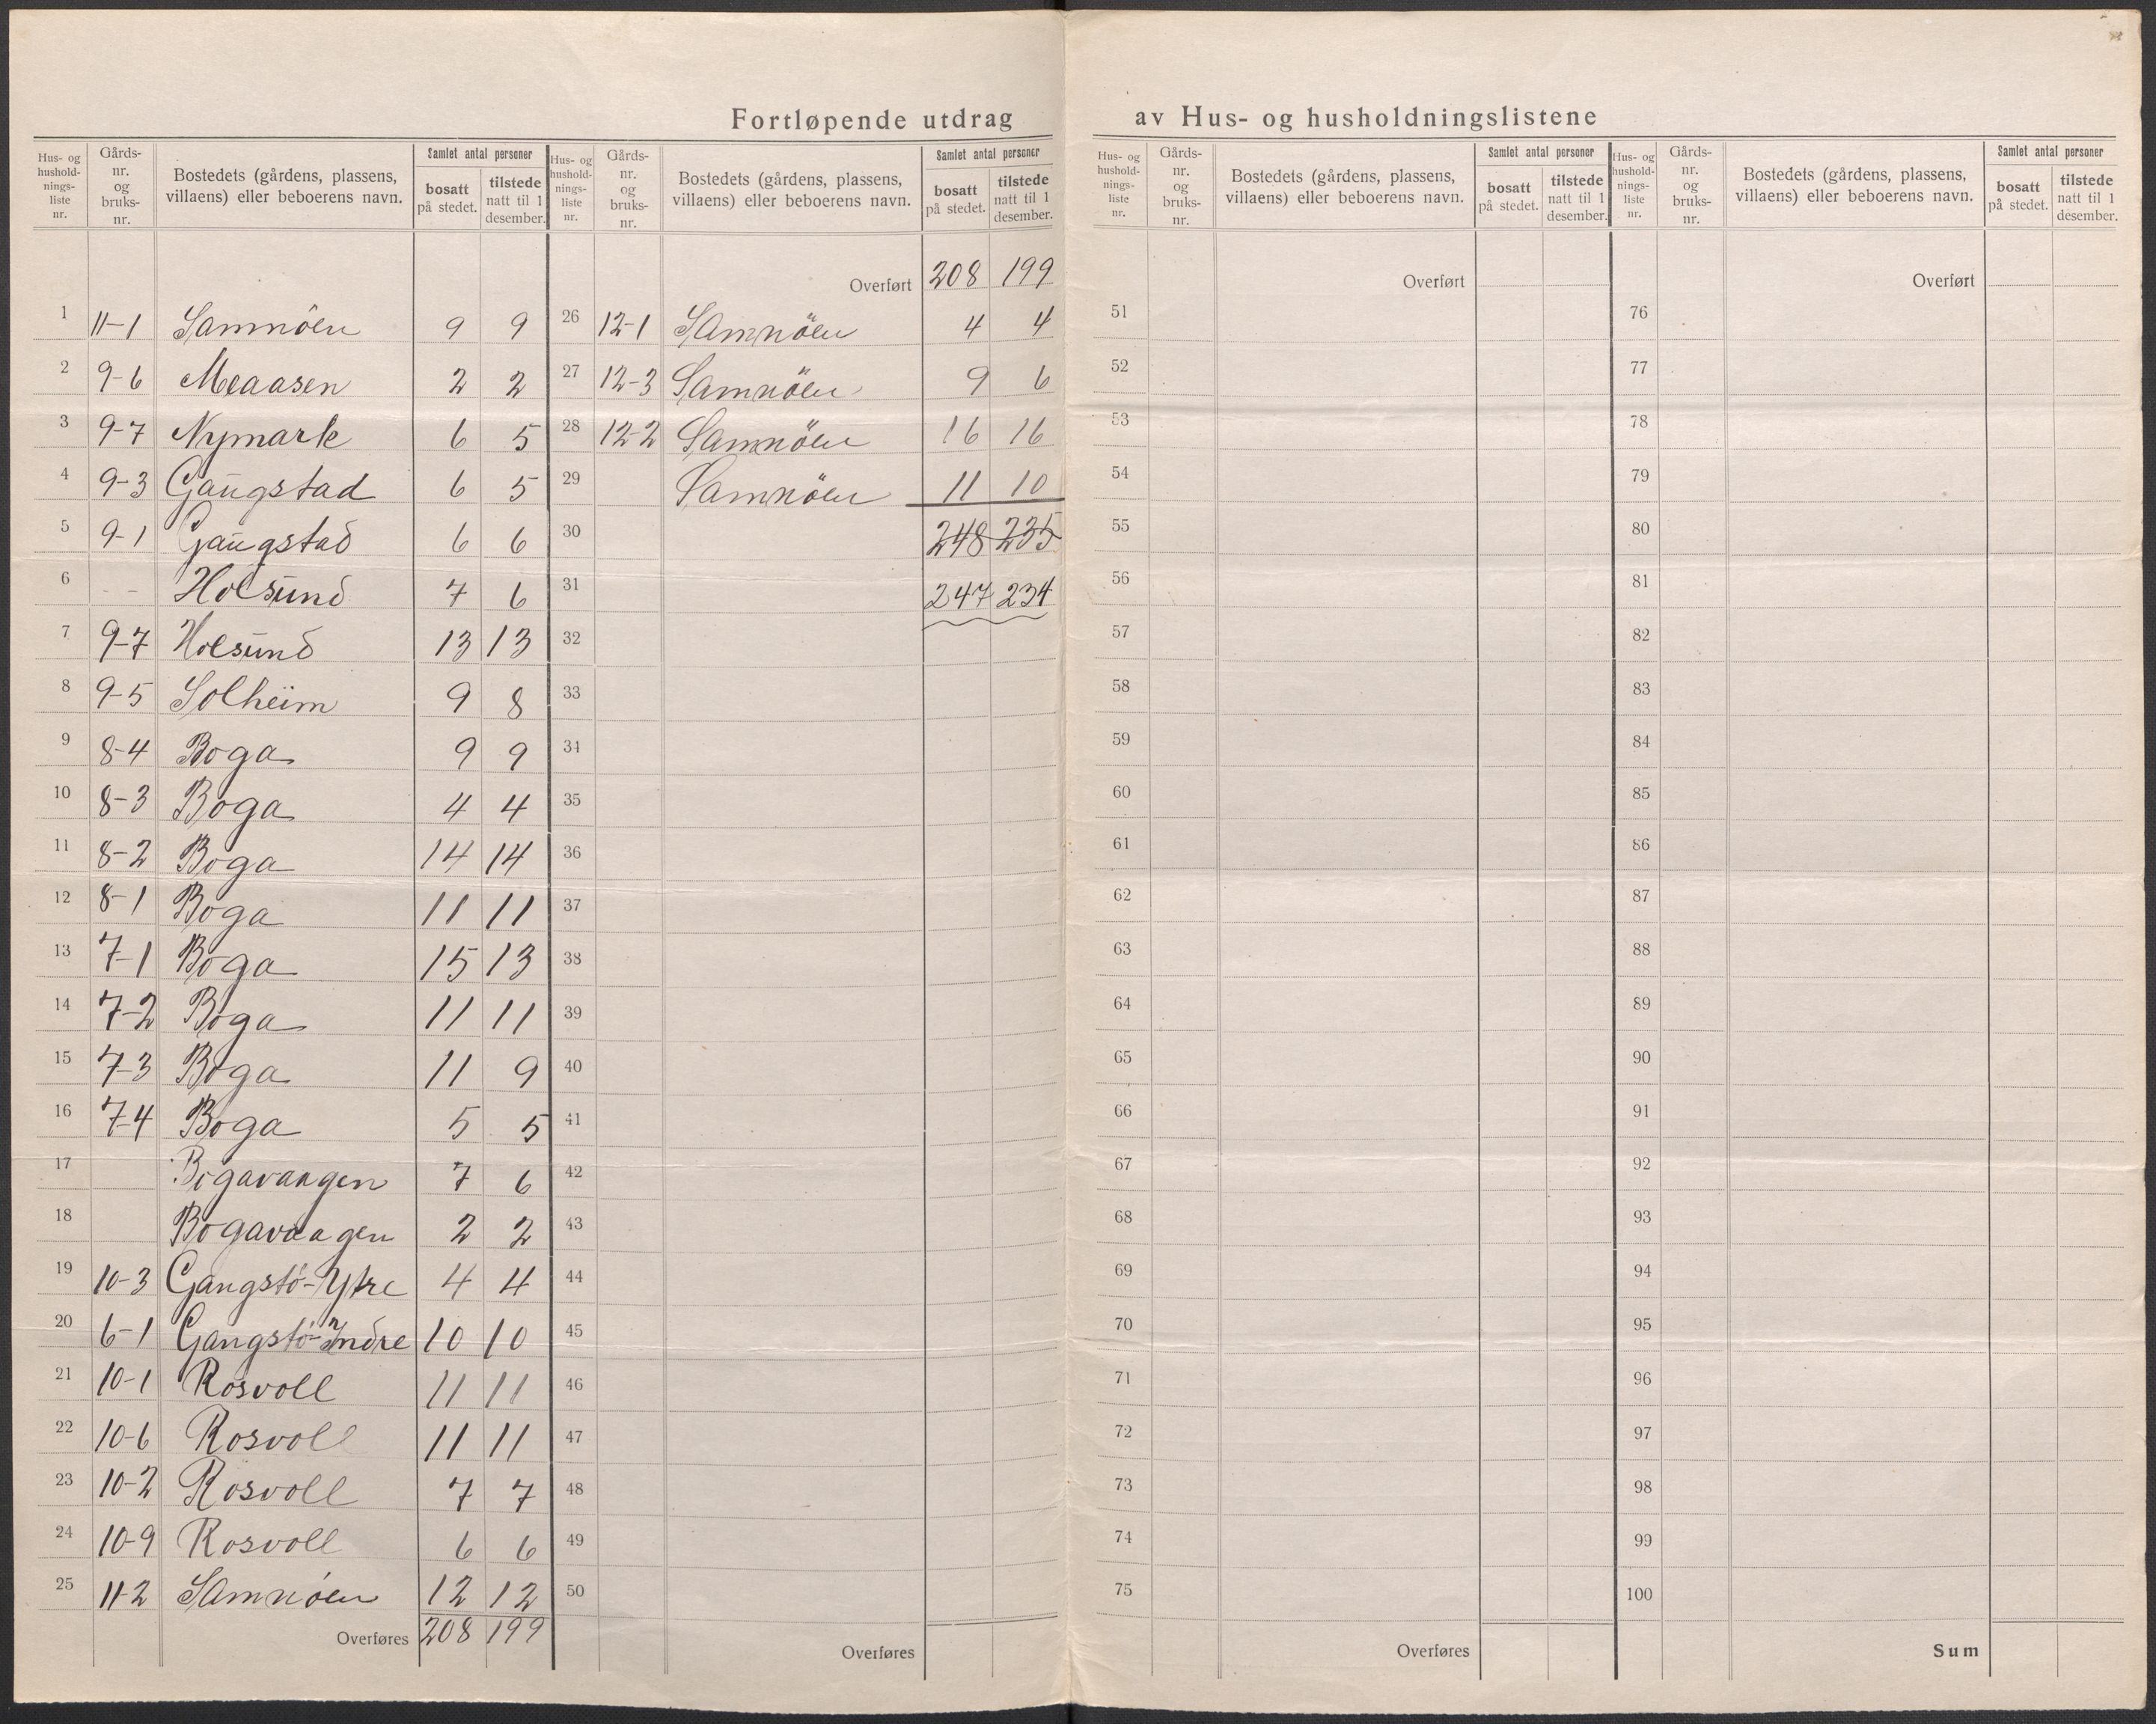 Fortløpende utdrag av Hus- og husholdningslistene
Hus- og husholdningsliste nr. Gårds-nr. og bruks-nr. Bostedets (gårdens, plassens, villaens) eller beboerens navn. Samlet antal personer bosatt på stedet. tilstede natt til 1 desember.
1 11-1 Samnöen 9 9
2 9-6 Meaasen 2 2
3 9-7 Nymark 6 5
4 9-3 Gangstad 6 5
5 9-1 Gangstad 6 6
6 - - Holsund 7 6
7 9-7 Holsund 13 13
8 9-5 Solheim 9 8
9 8-4 Boga 9 9
10 8-3 Boga 4 4
11 8-2 Boga 14 14
12 8-1 Boga 11 11
13 7-1 Boga 15 13
14 7-2 Boga 11 11
15 7-3 Boga 11 9
16 7-4 Boga 5 5
17 Bogavaagen 7 6
18 Bogavaagen 2 2
19 10-3 Gangstö-Ytre 4 4
20 6-1 Gangstö-Indre 10 10
21 10-1 Rosvoll 11 11
22 10-6 Rosvoll 11 11
23 10-2 Rosvoll 7 7
24 10-9 Rosvoll 6 6
25 11-2 Samnöen 12 12
Overføres 208 199
Hus- og husholdningsliste nr. Gårds-nr. og bruks-nr. Bostedets (gårdens, plassens, villaens) eller beboerens navn. Samlet antal personer bosatt på stedet. tilstede natt til 1 desember.
Overført 208 199
26 12-1 Samnöen 4 4
27 12-3 Samnöen 9 6
28 12-2 Samnöen 16 16
29 Samnöen 11 10
30 248 235
31 247 234
32
33
34
35
36
37
38
39
40
41
42
43
44
45
46
47
48
49
50
Overføres
Hus- og husholdningsliste nr. Gårds-nr. og bruks-nr. Bostedets (gårdens, plassens, villaens) eller beboerens navn. Samlet antal personer bosatt på stedet. tilstede natt til 1 desember.
Overført
51
52
53
54
55
56
57
58
59
60
61
62
63
64
65
66
67
68
69
70
71
72
73
74
75
Overføres
Hus- og husholdningsliste nr. Gårds-nr. og bruks-nr. Bostedets (gårdens, plassens, villaens) eller beboerens navn. Samlet antal personer bosatt på stedet. tilstede natt til 1 desember.
Overført
76
77
78
79
80
81
82
83
84
85
86
87
88
89
90
91
92
93
94
95
96
97
98
99
100
Sum